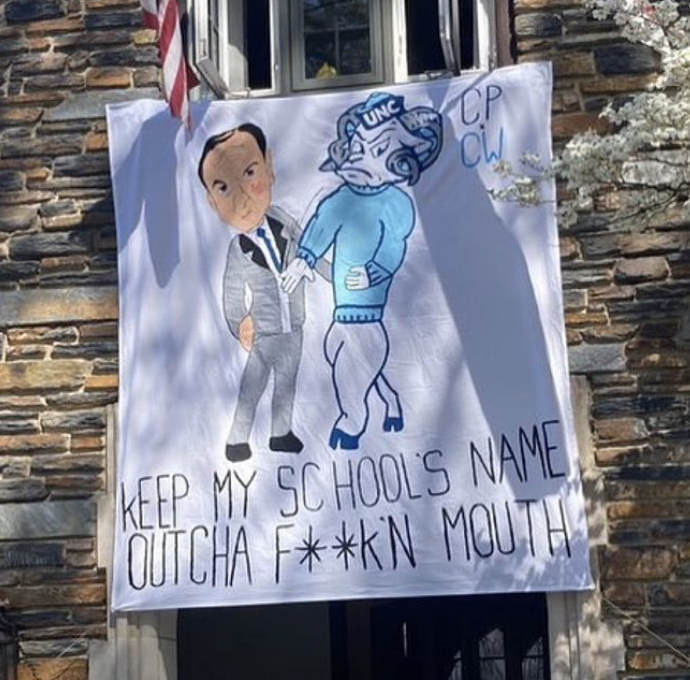 UNC
CP
CW
KEEP MY SCHOOL'S NAME
OUTCHA F**K'N MOUTH